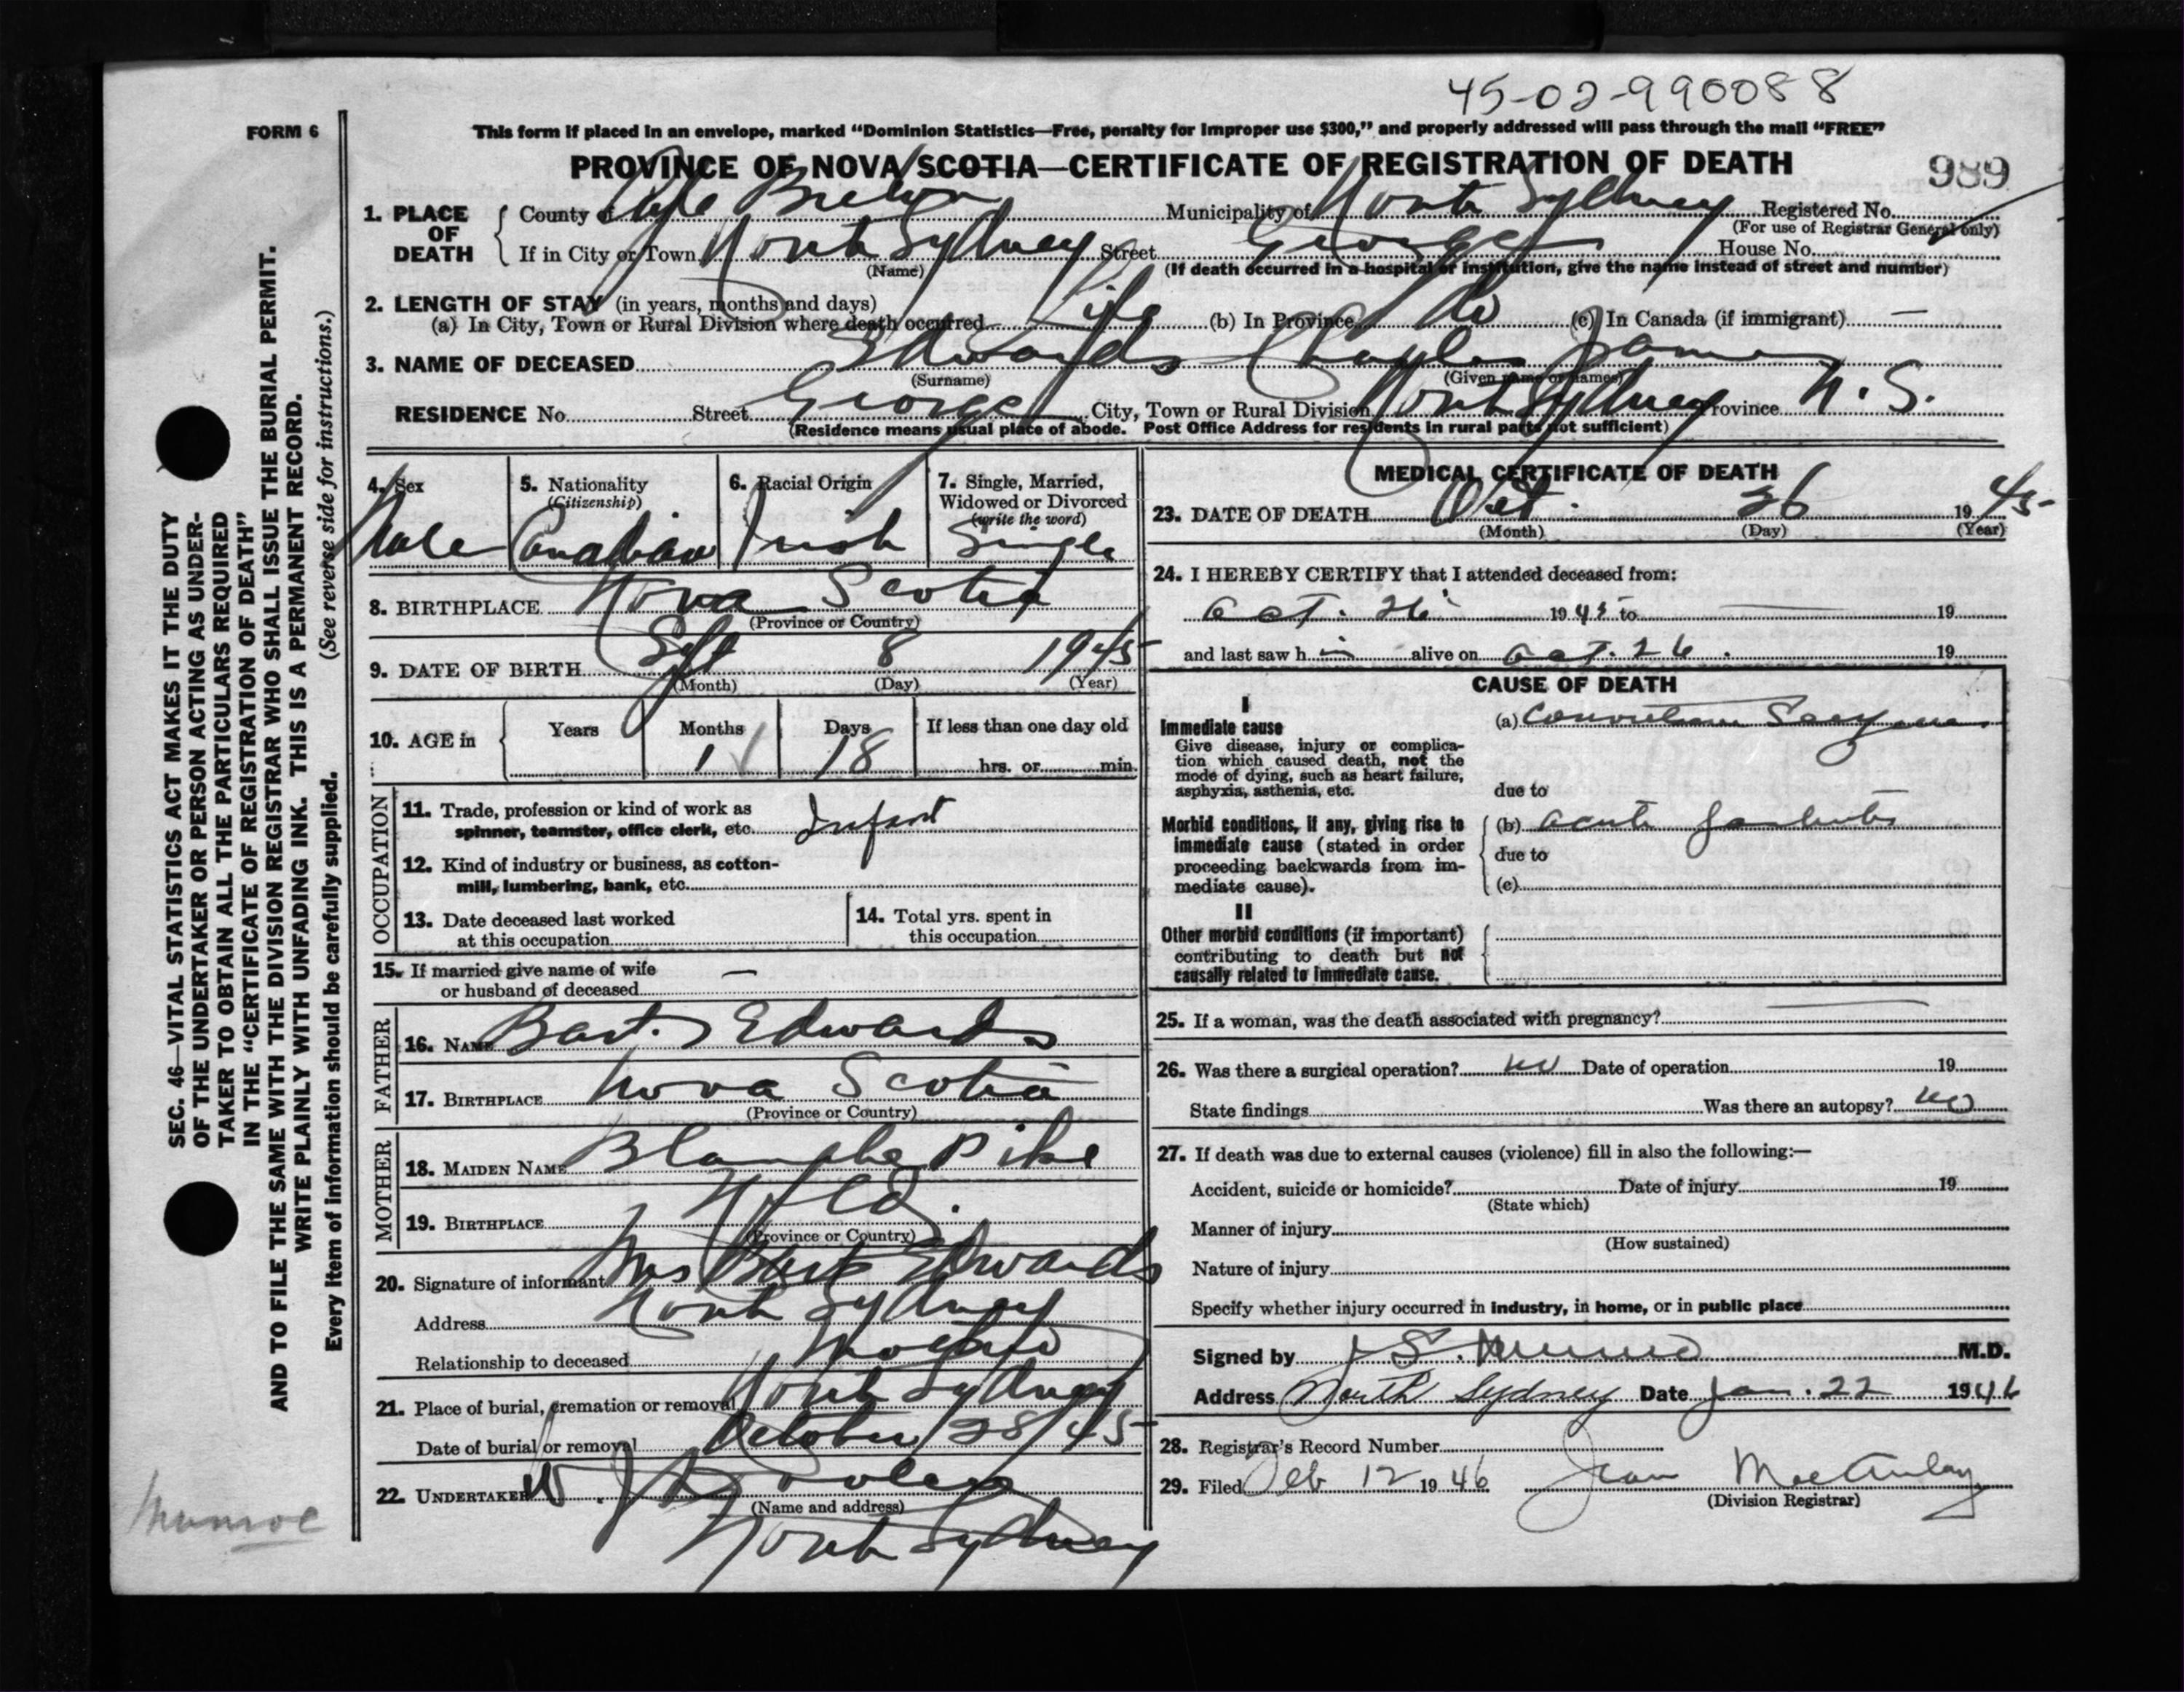 45-02-990088
FORM 6
This form if placed in an envelope, marked “Dominion Statistics—Free, penalty for improper use $300,” and properly addressed will pass through the mail “FREE”
PROVINCE OF NOVA SCOTIA—CERTIFICATE OF REGISTRATION OF DEATH
989
1. PLACE OF DEATH
County of Cape Breton Municipality of North Sydney Registered No.
(For use of Registrar General only)
If in City or Town North Sydney Street George House No.
(Name) (If death occurred in a hospital or institution, give the name instead of street and number)
2. LENGTH OF STAY (in years, months and days)
(a) In City, Town or Rural Division where death occurred Life (b) In Province do (c) In Canada (if immigrant) —
3. NAME OF DECEASED Edwards Charles James
(Surname) (Given name or names)
RESIDENCE No. Street George City, Town or Rural Division North Sydney Province N. S.
(Residence means usual place of abode. Post Office Address for residents in rural parts not sufficient)
4. Sex
Male
5. Nationality
(Citizenship)
Canadian
6. Racial Origin
Irish
7. Single, Married,
Widowed or Divorced
(write the word)
Single
8. BIRTHPLACE Nova Scotia
(Province or Country)
9. DATE OF BIRTH Sept 8 1945
(Month) (Day) (Year)
10. AGE in
Years Months Days If less than one day old
1 18 hrs. or min.
OCCUPATION
11. Trade, profession or kind of work as
spinner, teamster, office clerk, etc. Infant
12. Kind of industry or business, as cotton-
mill, lumbering, bank, etc.
13. Date deceased last worked
at this occupation
14. Total yrs. spent in
this occupation
15. If married give name of wife
or husband of deceased —
FATHER
16. NAME Bart. Edwards
17. BIRTHPLACE Nova Scotia
(Province or Country)
MOTHER
18. MAIDEN NAME Blanche Pike
19. BIRTHPLACE Nfld.
(Province or Country)
20. Signature of informant Mrs Bart Edwards
Address North Sydney
Relationship to deceased Mother
21. Place of burial, cremation or removal North Sydney
Date of burial or removal October 28/45
22. UNDERTAKER W. J.
(Name and address)
North Sydney
MEDICAL CERTIFICATE OF DEATH
23. DATE OF DEATH Oct. 26 1945
(Month) (Day) (Year)
24. I HEREBY CERTIFY that I attended deceased from:
Oct. 26 1945 to — 19
and last saw h im alive on Oct. 26. 19
CAUSE OF DEATH
I
Immediate cause
Give disease, injury or complica-
tion which caused death, not the
mode of dying, such as heart failure,
asphyxia, asthenia, etc.
(a)
due to
Morbid conditions, if any, giving rise to
immediate cause (stated in order
proceeding backwards from im-
mediate cause).
(b) acute
due to
(c)
II
Other morbid conditions (if important)
contributing to death but not
causally related to immediate cause.
25. If a woman, was the death associated with pregnancy? —
26. Was there a surgical operation? no Date of operation 19
State findings Was there an autopsy? no
27. If death was due to external causes (violence) fill in also the following:—
Accident, suicide or homicide? Date of injury 19
(State which)
Manner of injury
(How sustained)
Nature of injury
Specify whether injury occurred in industry, in home, or in public place
Signed by J S. Munro M.D.
Address North Sydney Date Jan. 22 1946
28. Registrar's Record Number
29. Filed Feb 12 1946 Jean MacAulay
(Division Registrar)
SEC. 46—VITAL STATISTICS ACT MAKES IT THE DUTY
OF THE UNDERTAKER OR PERSON ACTING AS UNDER-
TAKER TO OBTAIN ALL THE PARTICULARS REQUIRED
IN THE “CERTIFICATE OF REGISTRATION OF DEATH”
AND TO FILE THE SAME WITH THE DIVISION REGISTRAR WHO SHALL ISSUE THE BURIAL PERMIT.
WRITE PLAINLY WITH UNFADING INK. THIS IS A PERMANENT RECORD.
Every item of information should be carefully supplied. (See reverse side for instructions.)
Munroe